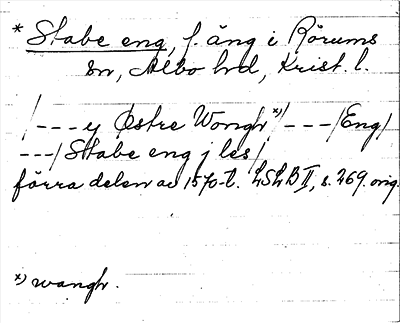 * Stabe eng, f. äng i Rörums
sn, Albo hd, Krist. l.
/---ij Østre Wongh x)/---/Eng/
---/Stabe eng j les/
förra delen av 1570-t. LSLB II, s. 269. orig.
x) wangh.